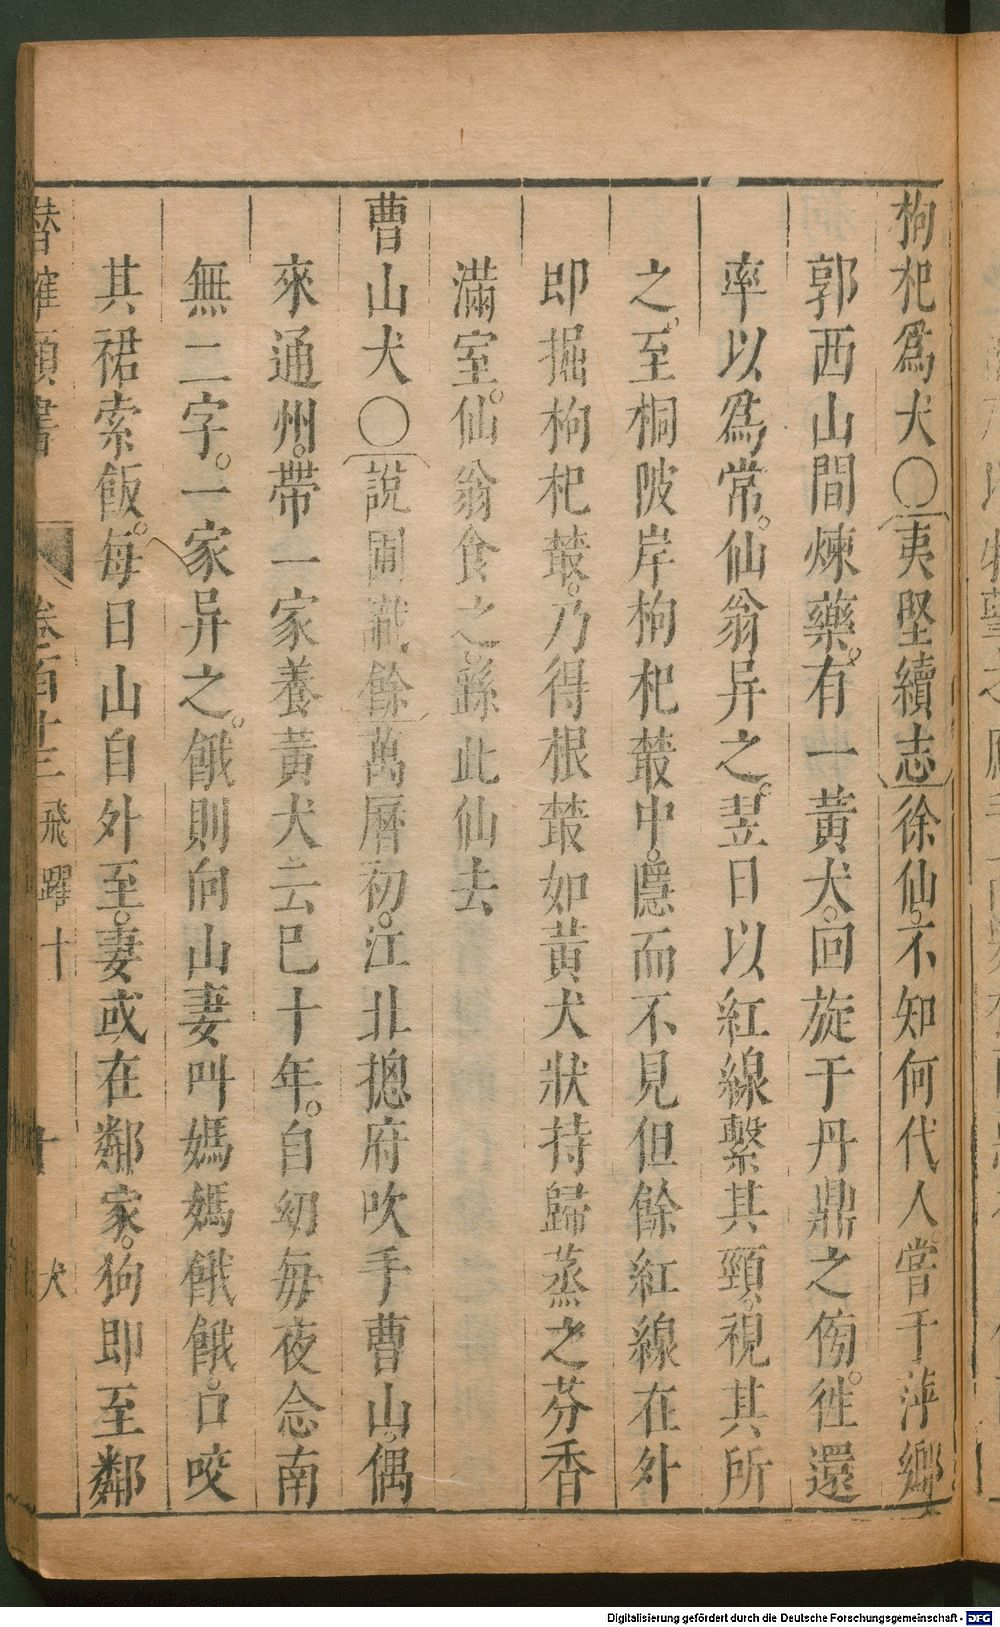 枸杞爲犬○夷堅續志徐仙不知何代人嘗于萍鄉
郭西山間煉藥。有一黃犬。回旋于丹鼎之傍。徃還
率以爲常。仙翁异之。翌日以紅線繫其頸。視其所
之。至桐陂岸枸杞叢中。隱而不見但餘紅線在外
即掘枸杞叢。乃得根叢如黃犬狀持歸蒸之芬香
滿室。仙翁食之。繇此仙去
曹山犬○說圃識餘萬曆初。江北摠府吹手曹山。偶
來通州。帶一家養黃犬云巳十年。自幼每夜念南
無二字。一家异之。餓則向山妻叫媽媽餓餓。口咬
其裙索飯。每日山自外至。妻或在鄰家。狗即至鄰
潛確類書 卷百十三 飛躍十 十 犬
Digitalisierung gefördert durch die Deutsche Forschungsgemeinschaft - DFG